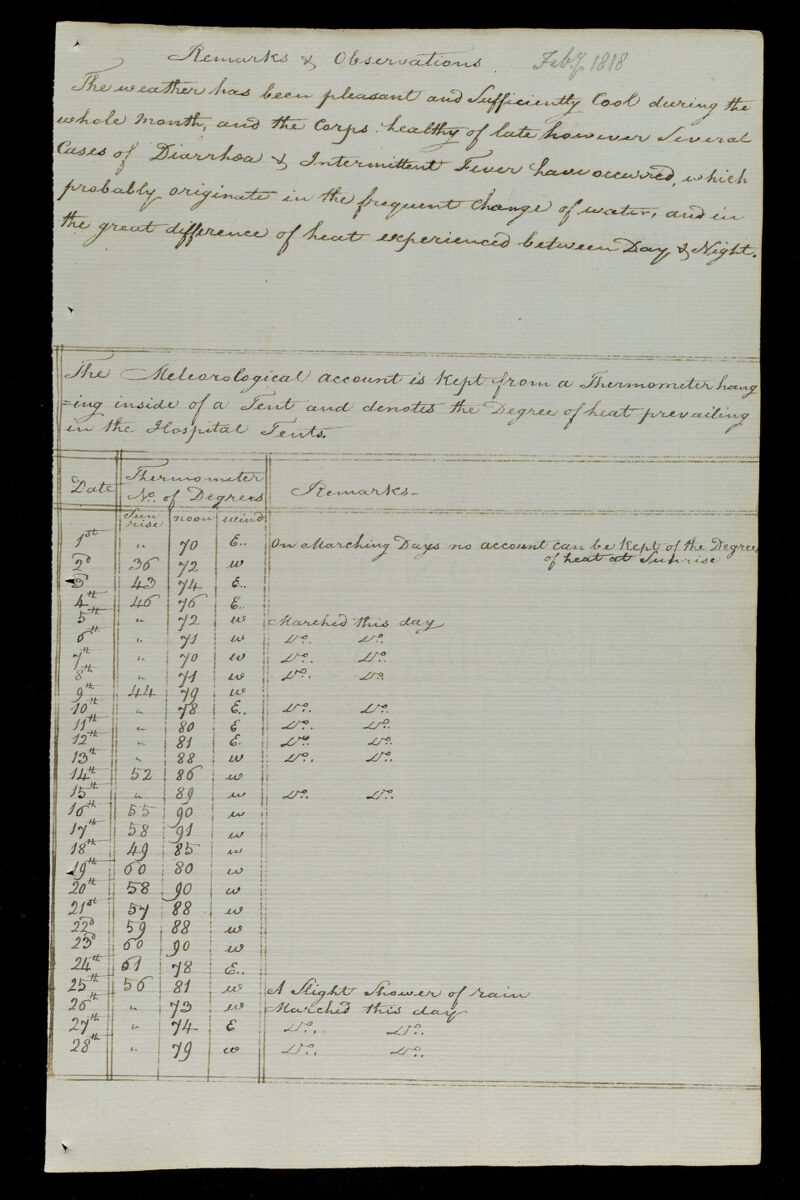 Remarks & Observations. Feby. 1818
The weather has been pleasant and Sufficiently Cool during the
whole Month, and the Corps healthy of late however Several
Cases of Diarrhœa & Intermittent Fever have occurred, which
probably originate in the frequent Change of water, and in
the great difference of heat experienced between Day & Night.
The Meteorological account is Kept from a Thermometer hang
=ing inside of a Tent and denotes the Degree of heat prevailing
in the Hospital Tents.
Date Thermometer No. of Degrees Remarks-
Sun rise noon wind
1st " 70 E.. On Marching Days no account can be Kept of the Degrees
of heat at Sunrise
2d 36 72 w
3d 43 74 E..
4th 46 76 E..
5th " 72 w Marched this day
6th " 71 w Do. Do.
7th " 70 w Do. Do.
8th " 71 w Do. Do.
9th 44 79 w
10th " 78 E.. Do. Do.
11th " 80 E Do. Do.
12th " 81 E. Do. Do.
13th " 88 w Do. Do.
14th 52 86 w
15th " 89 w Do. Do.
16th 55 90 w
17th 58 91 w
18th 49 85 w
19th 60 80 w
20th 58 90 w
21st 57 88 w
22d 59 88 w
23d 60 90 w
24th 61 78 E..
25th 56 81 w A Slight Shower of rain
26th " 73 w Marched this day
27th " 74 E Do. Do.
28th " 79 w Do. Do.